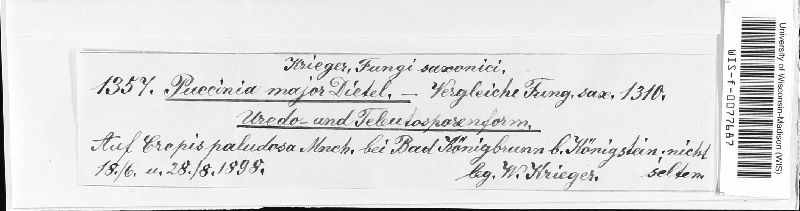 Krieger, Fungi saxonici.
1357. Puccinia major Dietel. — Vergleiche Fung. sax. 1310.
Uredo- und Teleutosporenform.
Auf Crepis paludosa Mnch. bei Bad Königbrunn b. Königstein. nicht selten.
18./6. u. 28./8. 1898. leg. W. Krieger.
University of Wisconsin-Madison (WIS)
WIS-f-0077687